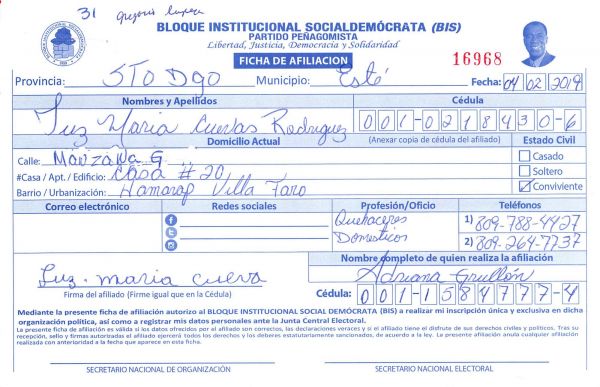 31 gregorio
BLOQUE INSTITUCIONAL SOCIALDEMÓCRATA (BIS)
PARTIDO PEÑAGOMISTA
Libertad, Justicia, Democracia y Solidaridad
FICHA DE AFILIACION
16968
Provincia: STO Dgo Municipio: Esté Fecha: 04 02 2019
Nombres y Apellidos Cédula
Luz Maria Cuevas Rodriguez 001-0218430-6
Domicilio Actual (Anexar copia de cédula del afiliado) Estado Civil
Calle: Manzana G. Casado
#Casa / Apt. / Edificio: casa #20 Soltero
Barrio / Urbanización: Hamarap Villa Faro Conviviente
Correo electrónico Redes sociales Profesión/Oficio Teléfonos
Quehaceres 1) 809-788-4427
Domesticos 2) 809-264-7737
Nombre completo de quien realiza la afiliación
Luz. maria cueva Adriana Grullón
Firma del afiliado (Firme igual que en la Cédula) Cédula: 001-1584777-4
Mediante la presente ficha de afiliación autorizo al BLOQUE INSTITUCIONAL SOCIAL DEMÓCRATA (BIS) a realizar mi inscripción única y exclusiva en dicha
organización política, así como a registrar mis datos personales ante la Junta Central Electoral.
La presente ficha de afiliación es válida si los datos ofrecidos por el afiliado son correctos, las declaraciones veraces y si el afiliado tiene el disfrute de sus derechos civiles y políticos. Tras su
recepción, sello y firmas autorizadas el afiliado ejercerá todos los derechos y los deberes estatutariamente sancionados, de acuerdo a la ley. La presente afiliación anula cualquier afiliación
realizada con anterioridad a la fecha que aparece en esta ficha.
SECRETARIO NACIONAL DE ORGANIZACIÓN SECRETARIO NACIONAL ELECTORAL